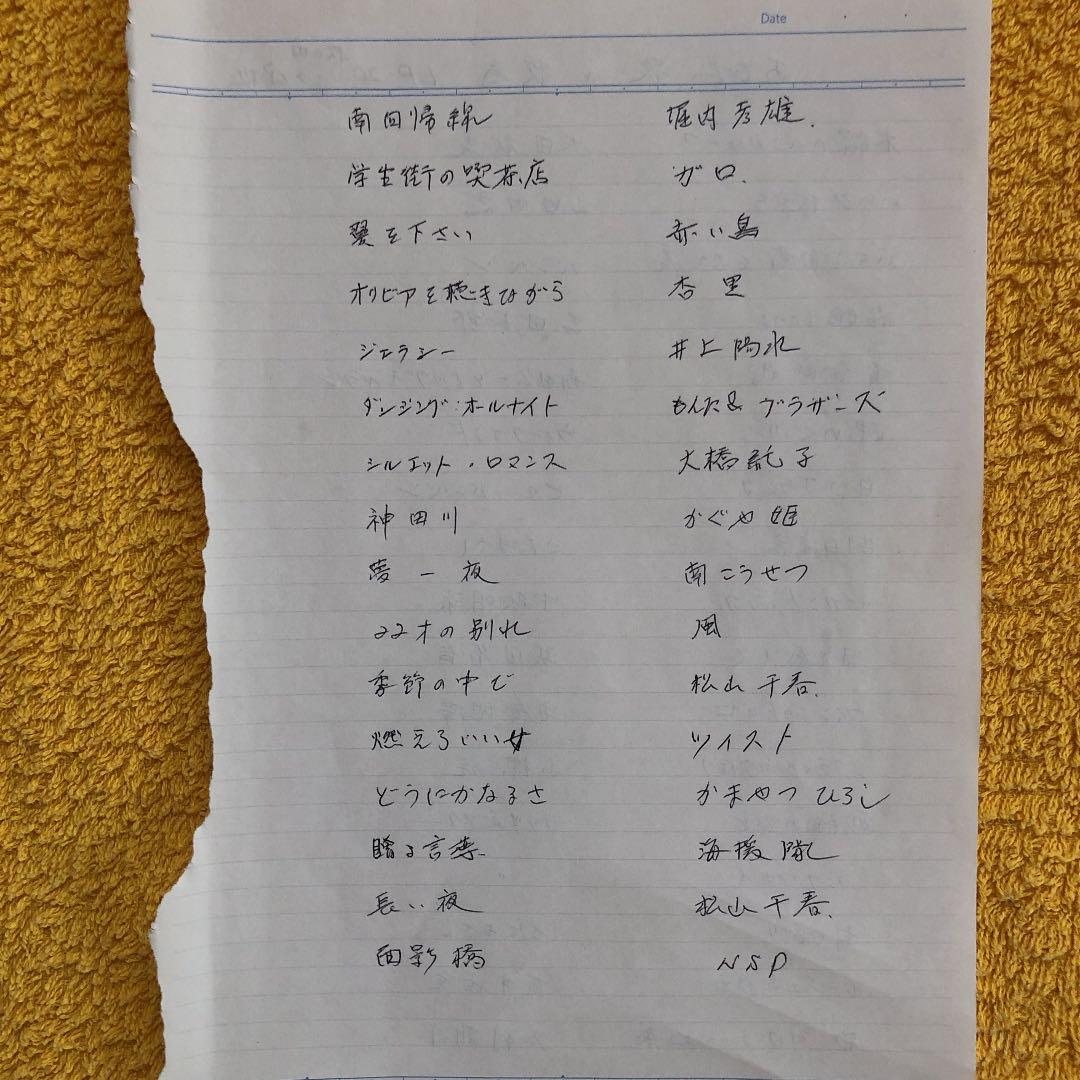 Date
南回帰線 堀内孝雄.
学生街の喫茶店 ガロ.
翼を下さい 赤い鳥
オリビアを聴きながら 杏里
ジェラシー 井上陽水
ダンシング・オールナイト もんた& ブラザーズ
シルエット・ロマンス 大橋純子
神田川 かぐや姫
夢一夜 南こうせつ
22才の別れ 風
季節の中で 松山千春.
燃えろいい女 ツイスト
どうにかなるさ かまやつ ひろし
贈る言葉 海援隊
長い夜 松山千春.
面影橋 NSP